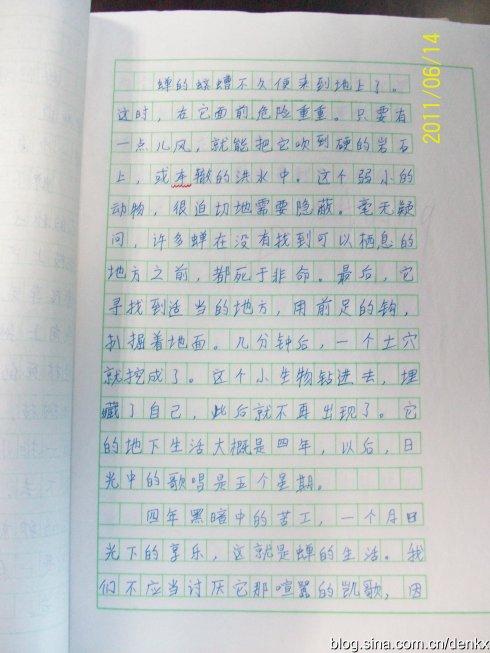 蝉的蛴螬不久便来到地上了。
这时，在它面前危险重重。只要有
一点儿风，就能把它吹到硬的岩石
上，或车辙的洪水中。这个弱小的
动物，很迫切地需要隐蔽。毫无疑
问，许多蝉在没有找到可以栖息的
地方之前，都死于非命。最后，它
寻找到适当的地方，用前足的钩，
扒掘着地面。几分钟后，一个土穴
就挖成了。这个小生物钻进去，埋
藏了自己，此后就不再出现了。它
的地下生活大概是四年，以后，日
光中的歌唱是五个星期。
四年黑暗中的苦工，一个月日
光下的享乐，这就是蝉的生活。我
们不应当讨厌它那喧嚣的凯歌，因
2011/06/14
blog.sina.com.cn/denkx